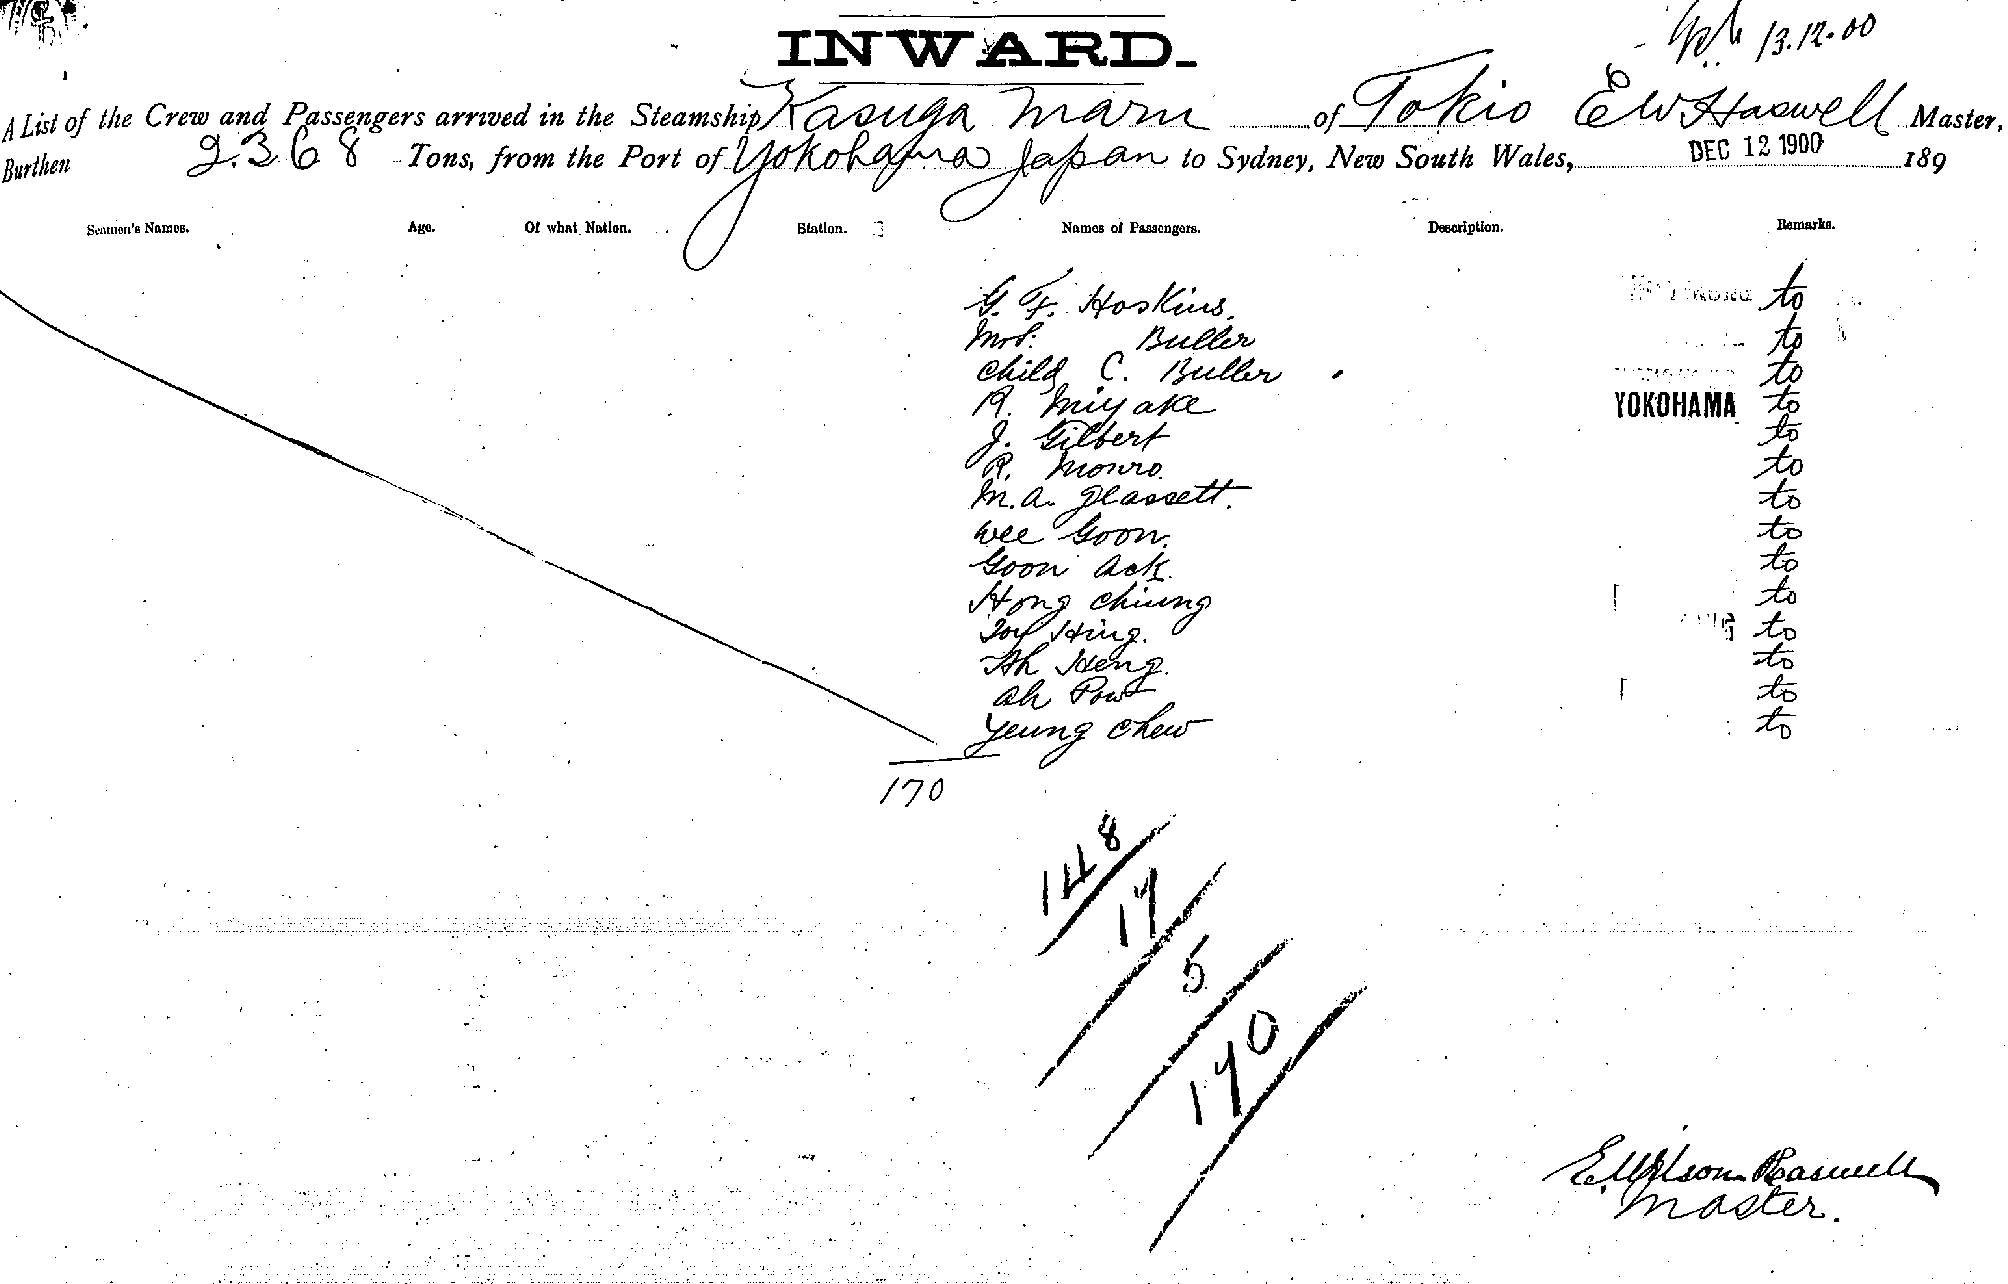 13.12.00
INWARD.
A List of the Crew and Passengers arrived in the Steamship Kasuga Maru of Tokio E W Haswell Master,
Burthen 2.368 Tons, from the Port of Yokohama Japan to Sydney, New South Wales, DEC 12 1900 189
Seamen's Names. Age. Of what Nation. Station. Names of Passengers. Description. Remarks.
G. F. Hoskins. to
Mrs. Buller to
child C. Buller to
R. Miyake YOKOHAMA to
J. Gilbert to
R. Monro. to
M.A. Glassett. to
Wee Goon. to
Goon Ack. to
Hong Chiung to
Hing. to
Ah Heng. to
Ah Pow to
Yeung Chew to
170
148
17
5
170
E. Wilson Haswell
Master.